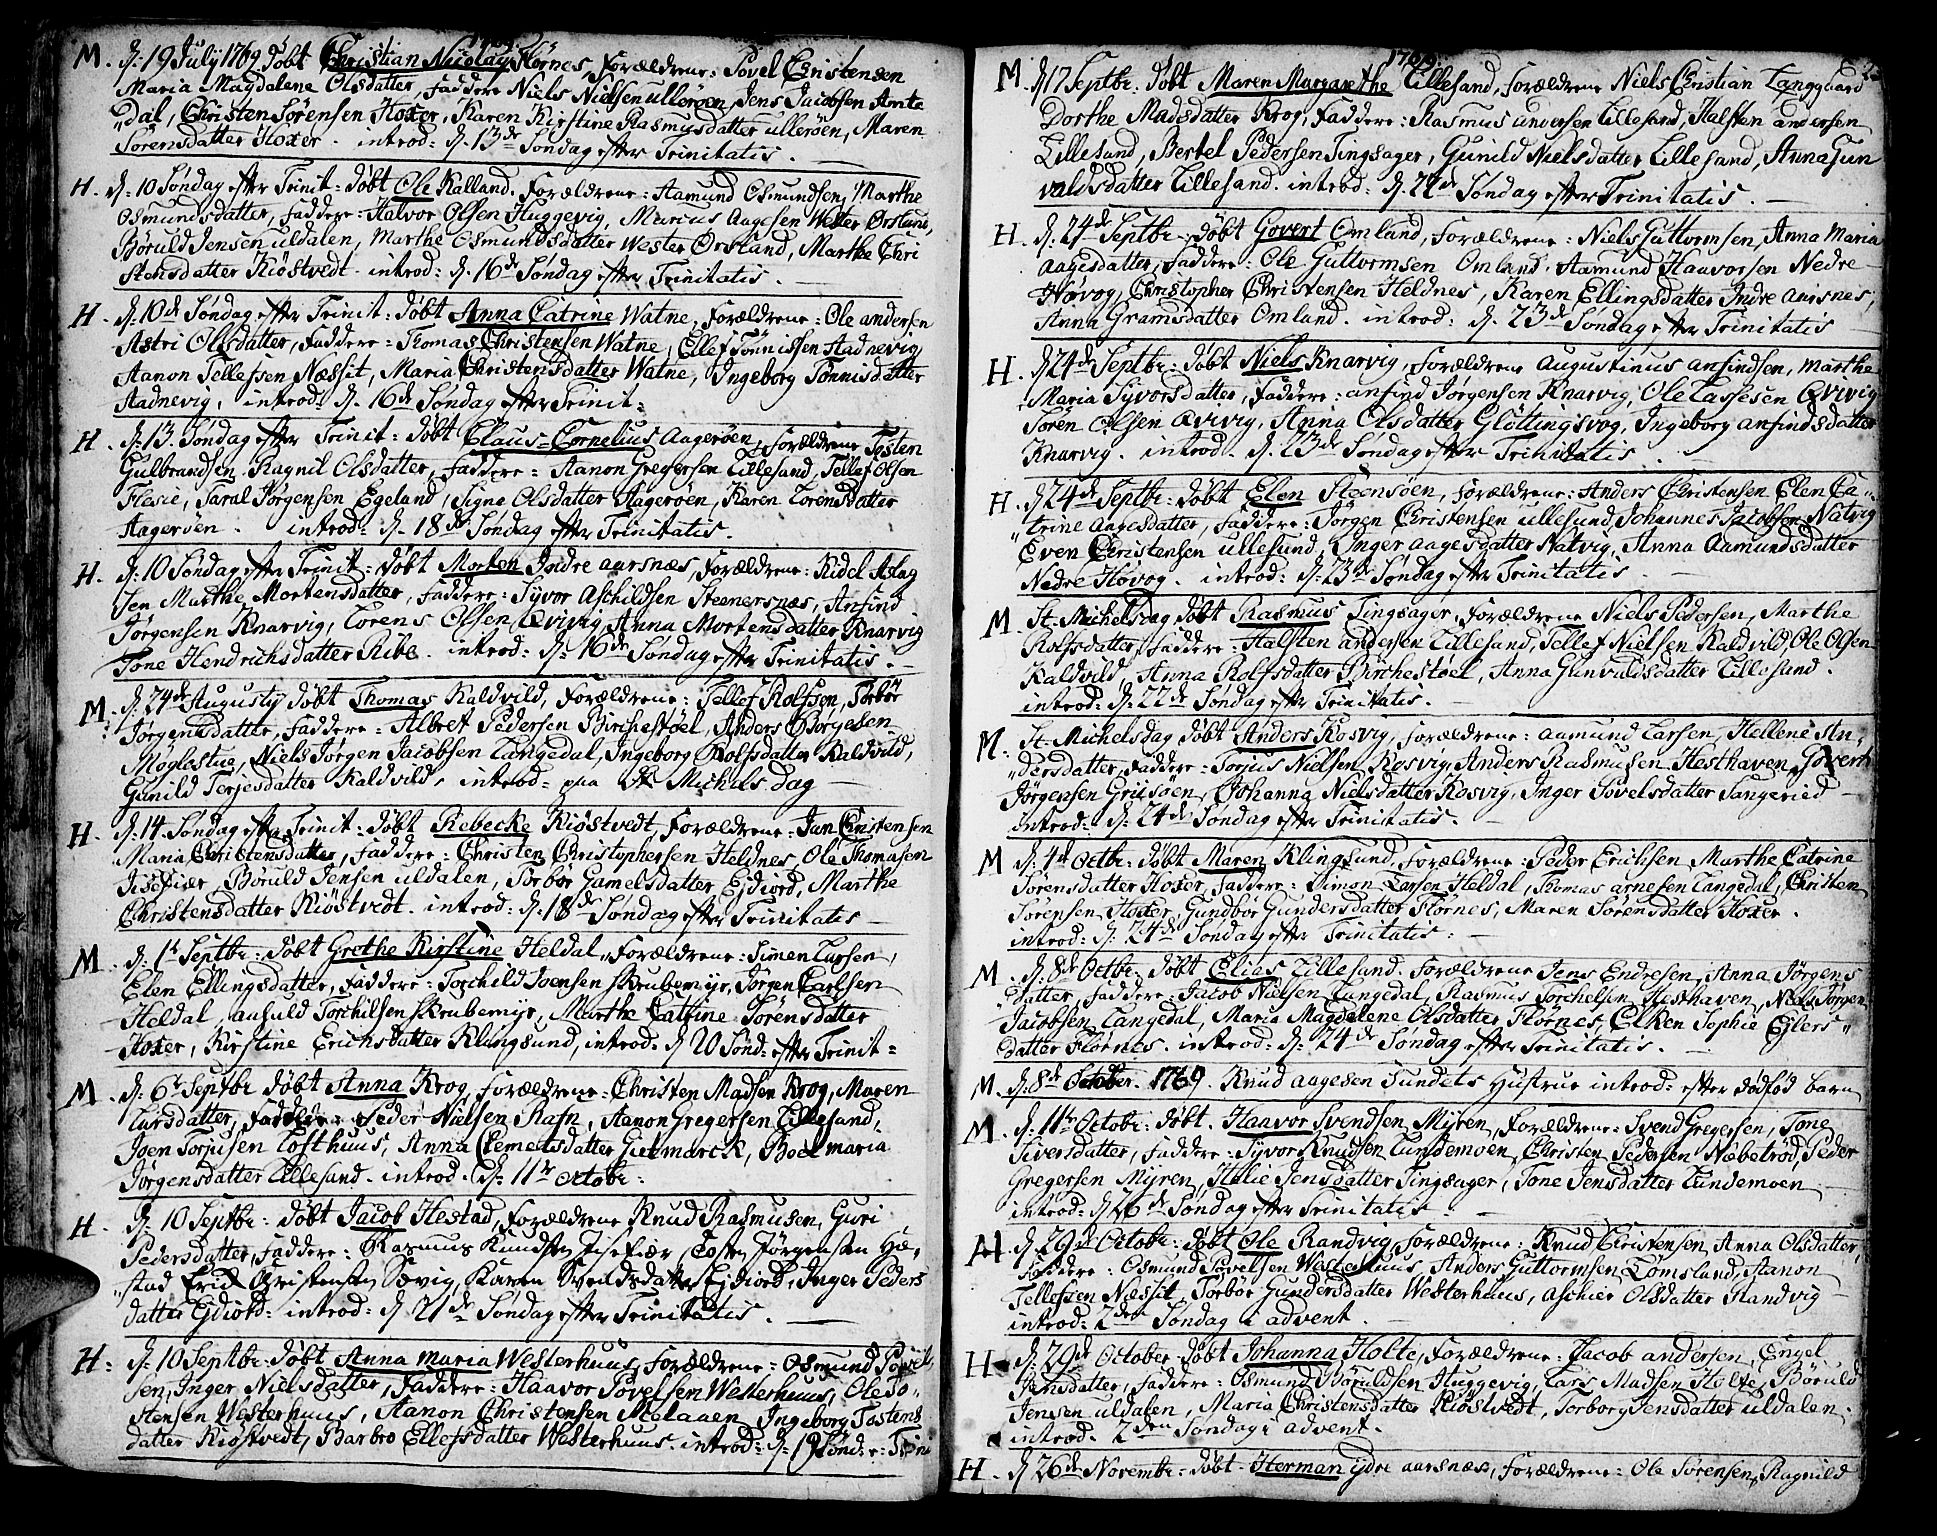 M. d: 19 July 1769. döbt Christian Nicolay Flörnes, Forældrene: Povel Christensen
Maria Magdalene Olsdatter, Faddere Niels Nielsen Ulleröen, Jens Jacobsen Amte
„dal, Christen Sörensen Hoxer, Karen Kirstine Rasmusdatter Ulleröen, Maren
Sörensdatter Hoxer. introd: d. 13de Søndag efter Trinitatis.
H. d: 10 Søndag efter Trinit: döbt Ole Kalland. Forældrene: Aamund Osmundsen, Marthe
Osmundsdatter, Faddere: Halvor Olsen Huggevig, Marcus Aagesen Wester Örsland,
Böruld Jensen Uldalen, Marthe Osmundsdatter Wester Örsland, Marthe Chri
stensdatter Kiöstvedt. introd: d. 16de Søndag efter Trinitatis.
H. d: 10de Søndag efter Trinit: döbt Anna Catrine Watne, Forældrene: Ole Andersen
Astri Olsdatter, Faddere: Thomas Christensen Watne, Ellef Tönnissen Stadnevig
Aanon Tellefsen Næssit, Maria Christensdatter Watne, Ingeborg Tönnisdatter
Stadnevig. introd: d. 16de Søndag efter Trinit:
H. d: 13. Søndag efter Trinit: döbt Claus-Cornelius Aageröen, Forældrene Tosten
Gulbrandsen, Ragnil Olsdatter, Faddere: Aanon Gregersen Lillesand, Tellef Olsen
Flesie, Taral Jörgensen Egeland, Signe Olsdatter Aageröen, Karen Lorensdatter
Aageröen. introd: d. 18de Søndag efter Trinitatis.
H. d: 10 Søndag efter Trinit: döbt Morten Indre aarsnæs, Forældrene: Kidel Aslag
sen Marthe Mortensdatter, Faddere: Syvor Aschildsen Steenersnæs, Anfind
Jörgensen Knarvig, Lorens Olsen Qvivig, Anna Mortensdatter Knarvig
Tone Hendrichsdatter Ribe. introd: d: 16de Søndag efter Trinitatis.
M. d. 24de Augusty döbt Thomas Kaldvild, Forældrene: Tellef Rolfsen, Torbör
Jörgensdatter, Faddere: Albret Pedersen Birchestöel, Anders Börgesen
Möglestue, Niels Jörgen Jacobsen Langedal, Ingeborg Rolfsdatter Kaldvild,
Gunild Terjesdatter Kaldvild, introd: paa St Michels Dag
H. d: 14. Søndag efter Trinit: döbt Rebecke Kiöstvedt, Forældrene: Jan Christensen
Maria Christensdatter, Faddere: Christen Christophersen Heldnes, Ole Thomasen
Jisefiær, Böruld Jensen Uldalen, Torbör Gamelsdatter Ejdiord, Marthe
Christensdatter Kiöstvedt. introd: d: 18de Søndag efter Trinitatis
M. d: 1te Septbr: döbt Grethe Kirstine Heldal, Forældrene: Simen Larsen,
Elen Ellingsdatter, Faddere: Torchild Joensen Skrubemyr, Jörgen Carlsen
Heldal, aufuld Torchilsen Skrubemyr, Marthe Catrine Sörensdatter
Hoxer, Kirstine Erichsdatter Klingsund, introd. d 20 Sönd: efter Trinit:
M. d: 6te Septbr döbt Anna Krog, Forældrene: Christen Madsen Krog, Maren
Larsdatter, Faddere: Peder Nielsen Rafn, Aanon Gregersen Lillesand,
Joen Torjusen Tofthuus, Anna Clemetsdatter Gietmarck, Boel maria
Jörgensdatter Lillesand. introd. d: 11te octobr:
H. d. 10 Septbr: döbt Jacob Hestad, Forældrene Knud Rasmusen, Guri
Pedersdatter, Faddere: Rasmus Knudsen Jisefiær, Tosten Jörgensen He,
„stad Erich Christensen Sævig, Karen Svendsdatter Ejdiord, Inger Peders
datter Ejdiord: introd: d 21de Søndag efter Trinitatis.
H: d: 10 Septbr: döbt Anna Maria Westerhuus, Forældrene: Osmund Povel,
sen, Inger Nielsdatter, Faddere: Haavor Povelsen Westerhuus, Ole To,
stensen Westerhuus, Aanon Christensen Melaaen, Ingeborg Tostens
datter Kiöstvedt, Barbro Ellefsdatter Westerhuus. introd: d: 19 Sönd: e: Trini
1769.
M. d 17 Septbr: döbt Maren Margarethe Lillesand, Forældrene Niels Christian Langgaard
Dorthe Madsdatter Krog, Faddere: Rasmus Andersen Lillesand, Halsten andersen
Lillesand, Bertel Pedersen Tingsager, Gunild Nielsdatter Lillesand, Anna Gun
valdsdatter Lillesand. introd: d. 22de Søndag efter Trinitatis.
H. d. 24de Septbr. döbt Govert Omland, Forældrene: Niels Guttormsen, Anna Maria
Aagesdatter, Faddere: Ole Guttormsen Omland. Aamund Haavorsen Nedre
Hövog, Christopher Christensen Heldnes, Karen Ellingsdatter Indre Aarsnes,
Anna Gramsdatter Omland. introd: d. 23de Søndag efter Trinitatis
H. d 24de Septbr: döbt Niels Knarvig, Forældrene Augustinus anfindsen, Marthe
Maria Syvorsdatter, Faddere: anfind Jörgensen Knarvig, Ole Lassesen Qvivig
Sören Olsen Qvivig, Anna Olsdatter Glöttingsvog, Ingeborg anfindsdatter
Knarvig. introd. d. 23de Søndag efter Trinitatis.
H. d 24de Septbr: döbt Elen Steensöen, Forældrene: Anders Christensen Elen Ca„
„trine Aanesdatter, Faddere: Jörgen Christensen Ullesund, Johannes Jacobsen Natvig
Even Christensen Ullesund, Inger Aagesdatter Natvig, Anna Aamundsdatter
Nedre Hövog. introd: d: 23de Søndag efter Trinitatis.
M. St. Michelsdag döbt Rasmus Tingsager, Forældrene Niels Pedersen, Marthe
Rolfsdatter, Faddere: Halsten andersen Lillesand, Tellef Nielsen Kaldvild, Ole Olsen
Kaldvild, Anna Rolfsdatter Birchestöel, Anna Gunvaldsdatter Lillesand.
introd: d: 22de Søndag efter Trinitatis.
M. St. Michelsdag döbt Anders Kosvig, Forældrene: Aamund Larsen, Hellene An,
„dersdatter, Faddere: Torjus Nielsen Kosvig, Anders Rasmusen Hesthaven, Govert
Jörgensen Griisöen, Johanna Nielsdatter Kosvig, Inger Povelsdatter Sangeried
introd: d: 24de Søndag efter Trinitatis.
M d: 4de Octbr: döbt Maren Klingsund, Forældrene: Peder Erichsen Marthe Catrine
Sörensdatter Hoxer, Faddere: Simon Larsen Heldal, Thomas arnesen Langedal, Christen
Sörensen Hoxer, Gundbör Gundersdatter Flörnes, Maren Sörensdatter Hoxer.
introd: d: 24de Søndag efter Trinitatis.
M. d. 8de Octbr: döbt Elias Lillesand. Forældrene Jens Endresen, Anna Jörgens
datter, Faddere: Jacob Nielsen Langedal, Rasmus Torchelsen Hesthaven, Niels Jörgen
Jacobsen Langedal, Maria Magdalene Olsdatter Flörnes, Elken Sophie Ejlers„
datter Flörnes. introd: d: 24de Søndag efter Trinitatis.
M. d: 8de October. 1769. Knud Aagesen Sundets Hustrue introd: efter dödföd barn
M. d. 11te Octobr: döbt. Haavor Svendsen Myren, Forældrene: Svend Gregersen, Tone
Siversdatter, Faddere: Syvor Knudsen Lundemoen, Christen Pedersen Næbetröd, Peder
Gregersen Myren, Helie Jensdatter Tingsager, Tone Jensdatter Lundemoen
introd: d 26de Søndag efter Trinitatis.
H. d 29de Octobr: döbt Ole Randvig, Forældrene: Knud Christensen, Anna Olsdatter,
Faddere: Osmund Povelsen Westerhuus, Anders Guttormsen Lomsland, Aanon
Tellefsen Næssit, Torbör Gundersdatter Westerhuus, Aschier Olsdatter Randvig
introd: 2den Søndag i advent.
H d. 29de October döbt Johanna Holte, Forældrene: Jacob andersen, Engel
Jensdatter, Faddere: Osmund Böruldsen Huggevig, Lars Madsen Holte, Böruld
Jensen Uldalen, Maria Christensdatter Kiöstvedt, Torborg Jensdatter Uldalen.
introd. 2den Søndag i advent.
H. d 26de Novembr: döbt Herman ydre aarsnæs, Forældrene: Ole Sörensen, Ragnild